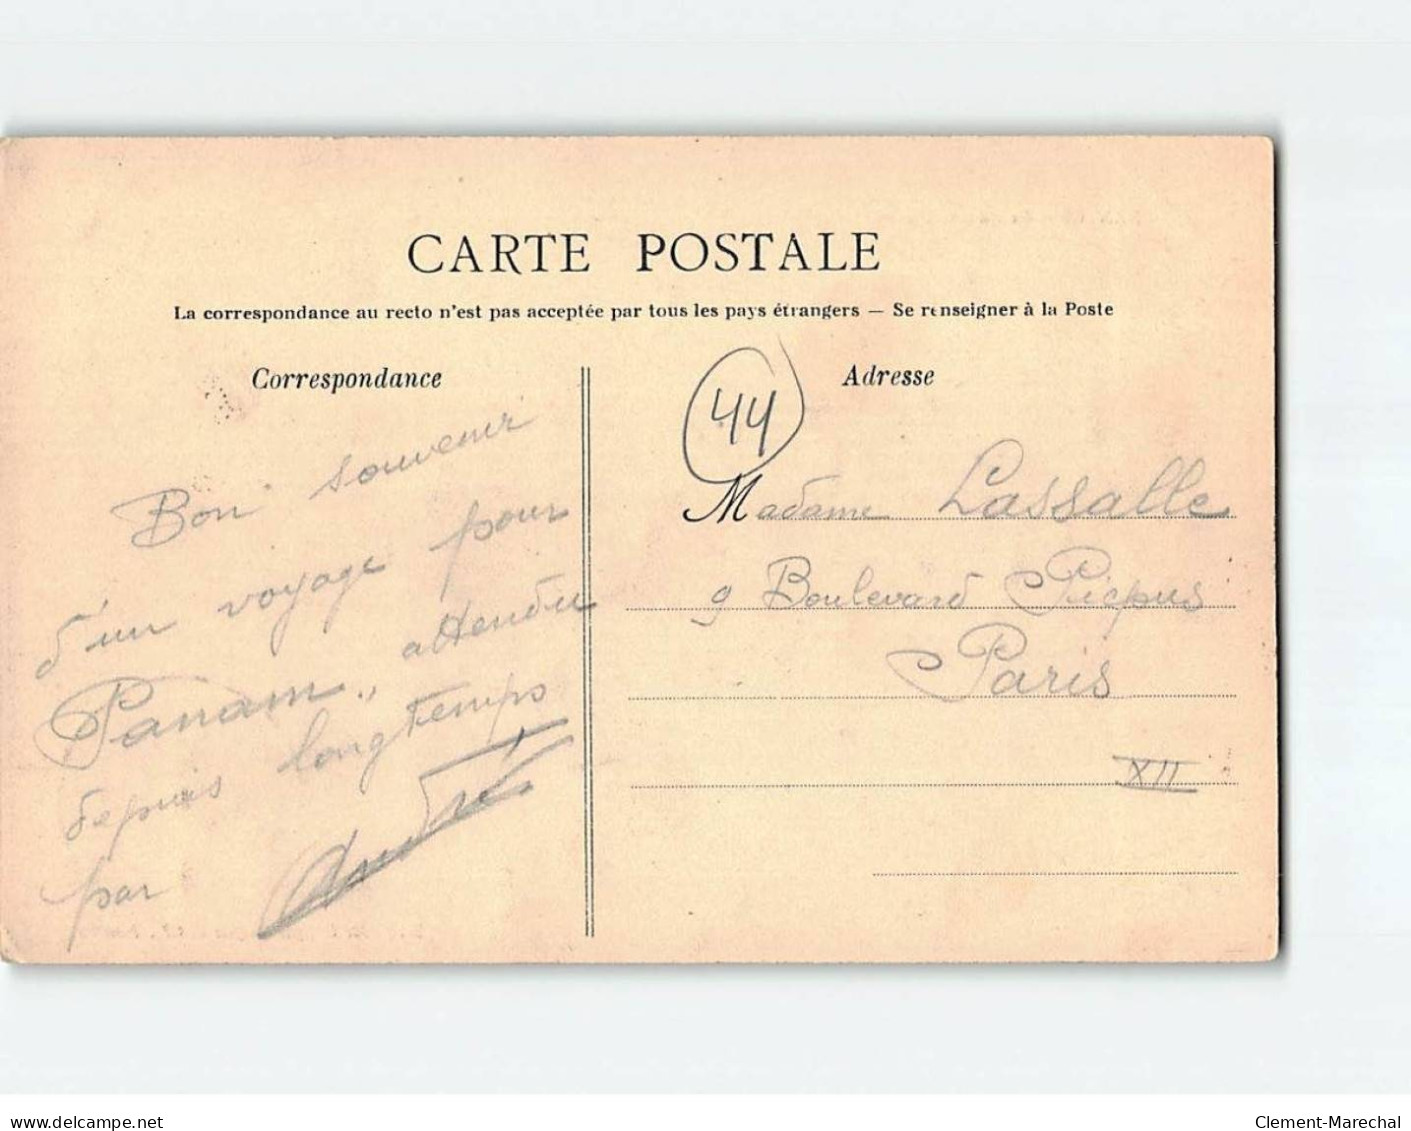 CARTE POSTALE
La correspondance au recto n'est pas acceptée par tous les pays étrangers — Se renseigner à la Poste
Correspondance
Bon souvenir
d'un voyage pour
Panam" attendu
depuis longtemps
par André
Adresse
44
Madame Lassalle
9 Boulevard Picpus
Paris
XII
www.delcampe.net
Clement-Marechal